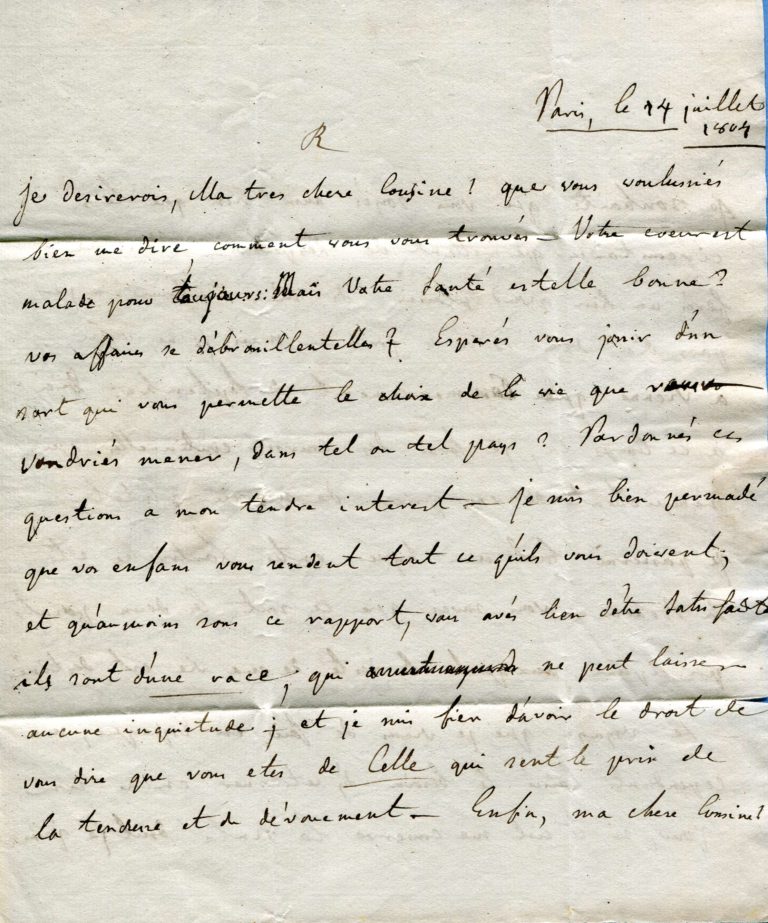 Paris, le 14 juillet
1804
R
je desirerois, Ma tres chere Cousine ! que vous voulussiés
bien me dire, comment vous vous trouvés – Votre coeur est
malade pour toujours: Mais Votre Santé estelle bonne ?
vos affaires se débrouillentelles ? Esperés vous jouir d'un
sort qui vous permette le choix de la vie que
voudriés mener, dans tel ou tel pays ? Pardonnés ces
questions a mon tendre interest – je suis bien persuadé
que vos enfans vous rendent tout ce qu'ils vous doivent;
et qu'aumoins sous ce rapport, vous avés lieu d'être Satisfaite
ils sont d'une race, qui ne peut laisser
aucune inquietude ; et je suis fier d'avoir le droit de
vous dire que vous etes de Celle qui sent le prix de
la tendresse et du dévouement – Enfin, ma chere Cousine !